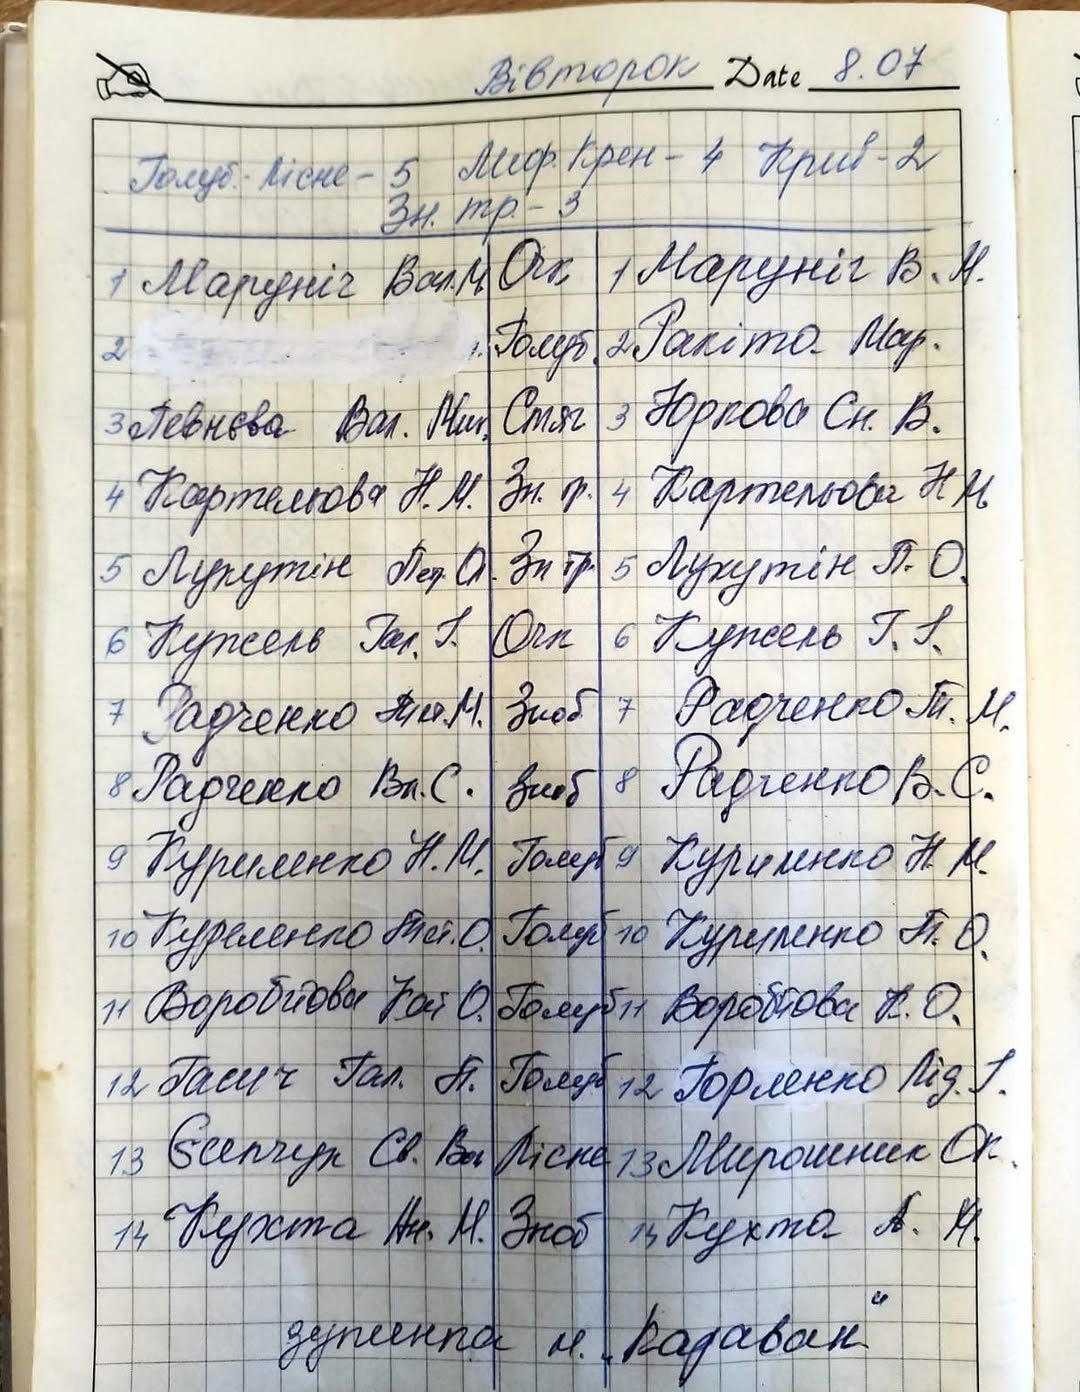 Вівторок Date 8.07
Голуб. Лісне - 5 Миф. Крен - 4 Крив - 2
Зн. тр. - 3
1 Маруніч Вал. М. Очк 1 Маруніч В. М.
2 Голуб. 2 Ракіта Мар.
3 Певнєва Вал. Мих. Стяг 3 Юркова Сн. В.
4 Картельова Н. М. Зн. тр. 4 Картельова Н М
5 Лукутін Пет. Ол. Зн тр. 5 Лукутін П. О.
6 Кужель Гал. І. Очк 6 Кужель Г. І.
7 Радченко М. Зноб 7 Радченко Т. М.
8 Радченко Вл. С. Зноб 8 Радченко В. С.
9 Куриленко Н. М. Голуб 9 Куриленко Н М.
10 Куреленко О. Голуб 10 Куриленко О.
11 Воробйова Кат О. Голуб 11 Воробйова К. О.
12 Гасич Гал. П. Голуб 12 Горленко Лід. І.
13 Св. Лісне 13 Мирошник Ок.
14 Кухта Ан. М. Зноб 14 Кухта А. М.
зупинка м. „Караван"